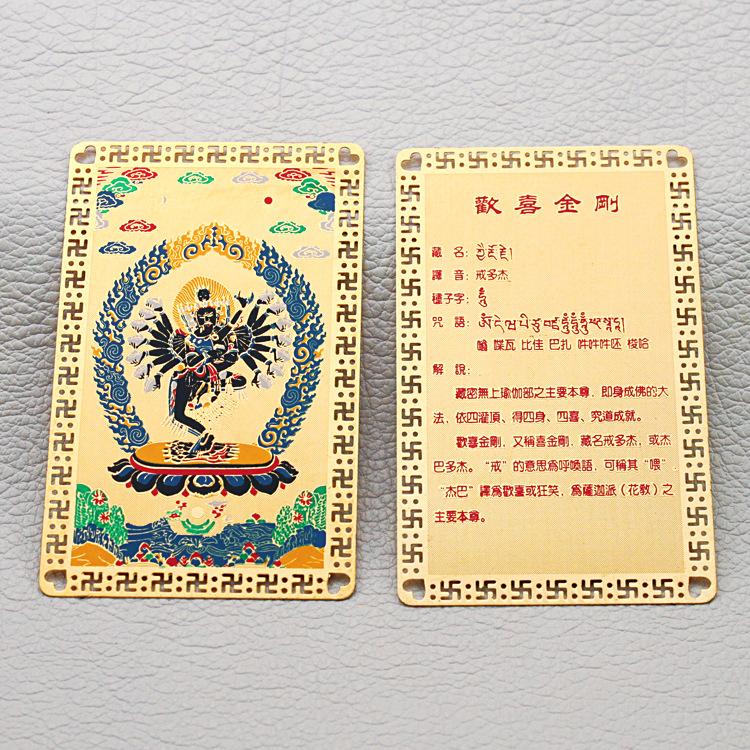 歡喜金剛
藏 名: ཀྱེ་རྡོ་རྗེ།
譯 音: 戒多杰
種子字: ཧཱུྃ
咒 語: ཨོཾ་དེ་ཝ་པི་ཙུ་བཛྲ་ཧཱུྃ་ཧཱུྃ་ཧཱུྃ་ཕཊ་སྭཱ་ཧཱ།
嗡 喋瓦 比佳 巴扎 吽吽吽呸 梭哈
解 説:
藏密無上瑜伽部之主要本尊，即身成佛的大
法，依四灌頂、得四身、四喜、究道成就。
歡喜金剛，又稱喜金剛，藏名戒多杰，或杰
巴多杰。“戒”的意思爲呼唤語，可稱其“喂”，
“杰巴”譯爲歡喜或狂笑，爲薩迦派（花教）之
主要本尊。